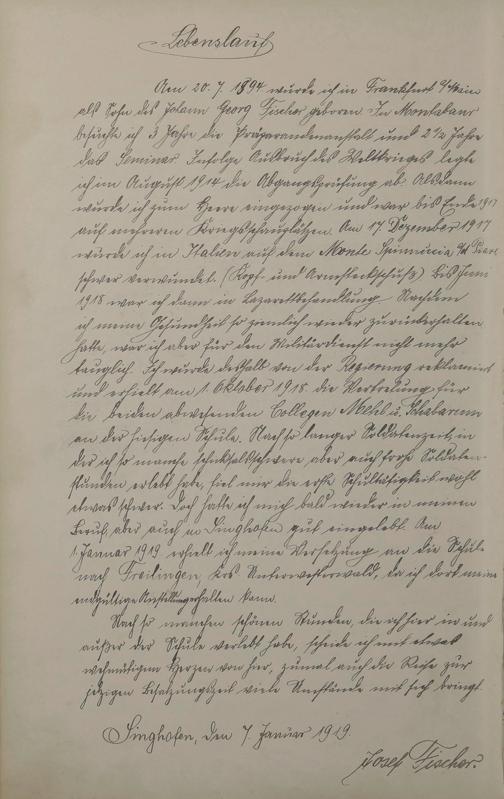 Lebenslauf
Am 20. 7. 1894 wurde ich in Frankfurt a/Main
als Sohn des Johann Georg Fischer geboren. In Montabaur
besuchte ich 3 Jahre die Präparandenanstalt und 2½ Jahre
das Seminar. Infolge Ausbruch des Weltkrieges legte
ich im August 1914 die Abgangsprüfung ab. Alsdann
wurde ich zum Heere eingezogen und war bis Ende 1917
auf mehreren Kriegsschauplätzen. Am 17. Dezember 1917
wurde ich in Italien auf dem Monte
schwer verwundet. (Kopf- und Armsteckschuß) Bis Juni
1918 war ich dann in Lazarettbehandlung. Nachdem
ich meine Gesundheit so ziemlich wieder zurückerhalten
hatte, war ich aber für den Militärdienst nicht mehr
tauglich. Ich wurde deshalb von der Regierung reklamiert
und erhielt am 1. Oktober 1918 die Vertretung für
die beiden abwesenden Collegen
an der hiesigen Schule. Nach so langer Soldatenzeit, in
der ich so manche schicksalsschwere, aber auch frohe Soldaten-
stunden erlebt habe, fiel mir die erste Schultätigkeit wohl
etwas schwer. Doch hatte ich mich bald wieder in meinen
Beruf, aber auch in Singhofen gut eingelebt. Am
1. Januar 1919 erhielt ich meine Versetzung an die Schule
nach Freilingen, Krs Unterwesterwald, da ich dort meine
endgültige Anstellung erhalten kann.
Nach so manchen schönen Stunden, die ich hier in und
außer der Schule verlebt habe, scheide ich mit etwas
wehmütigem Herzen von hier, zumal auch die Reise zur
jetzigen Besatzungszeit viele Umstände mit sich bringt.
Singhofen, den 7. Januar 1919.
Josef Fischer.